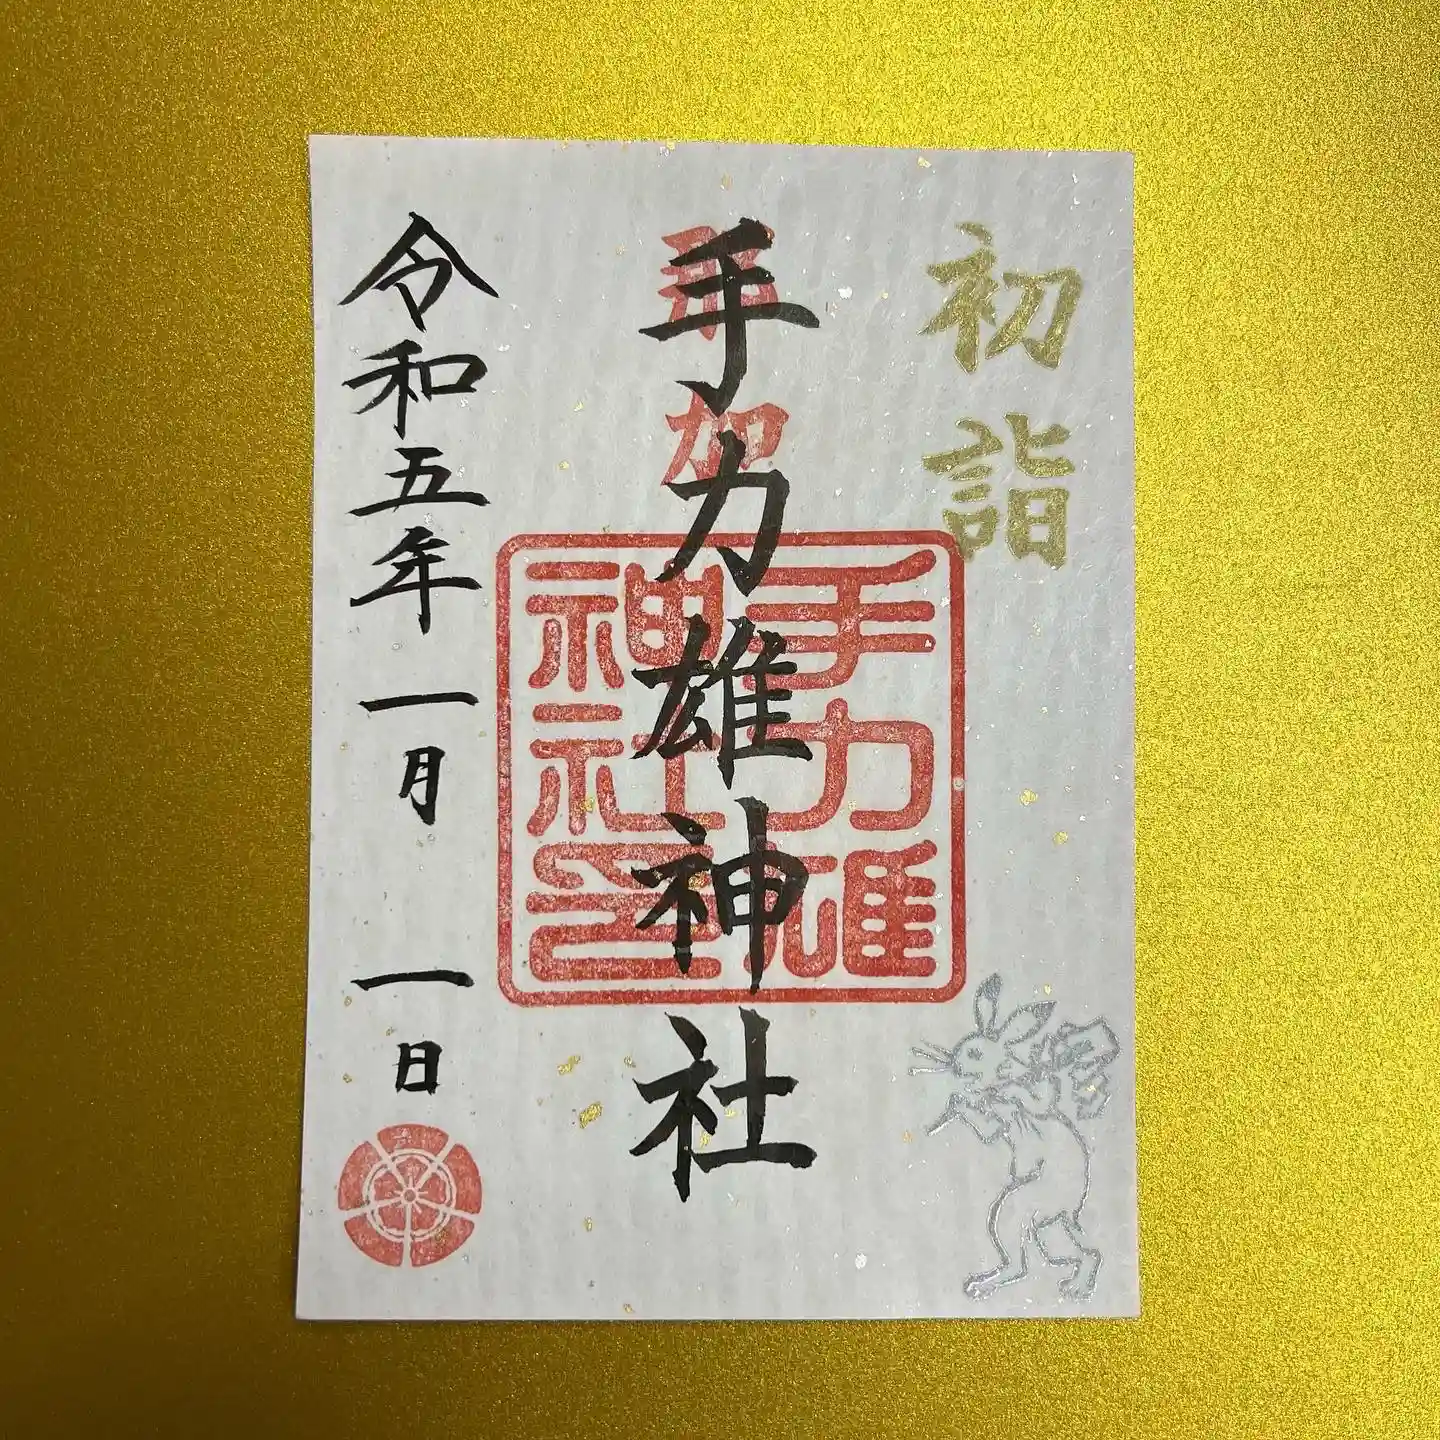 初詣
那加
手力雄神社
手力雄
神社印
令和五年一月一日